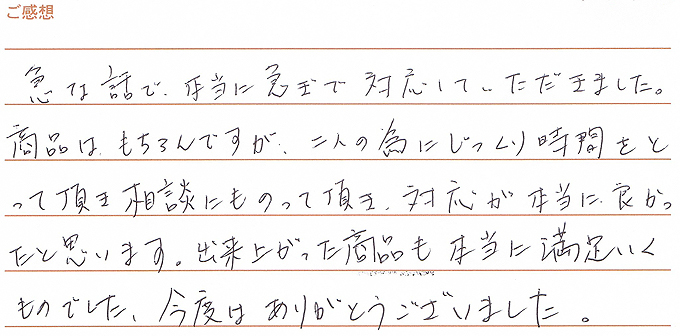 ご感想
急な話で、本当に急ぎで対応していただきました。
商品は、もちろんですが、二人の為にじっくり時間をと
って頂き相談にものって頂き、対応が本当に良かっ
たと思います。出来上がった商品も本当に満足いく
ものでした、今度はありがとうございました。